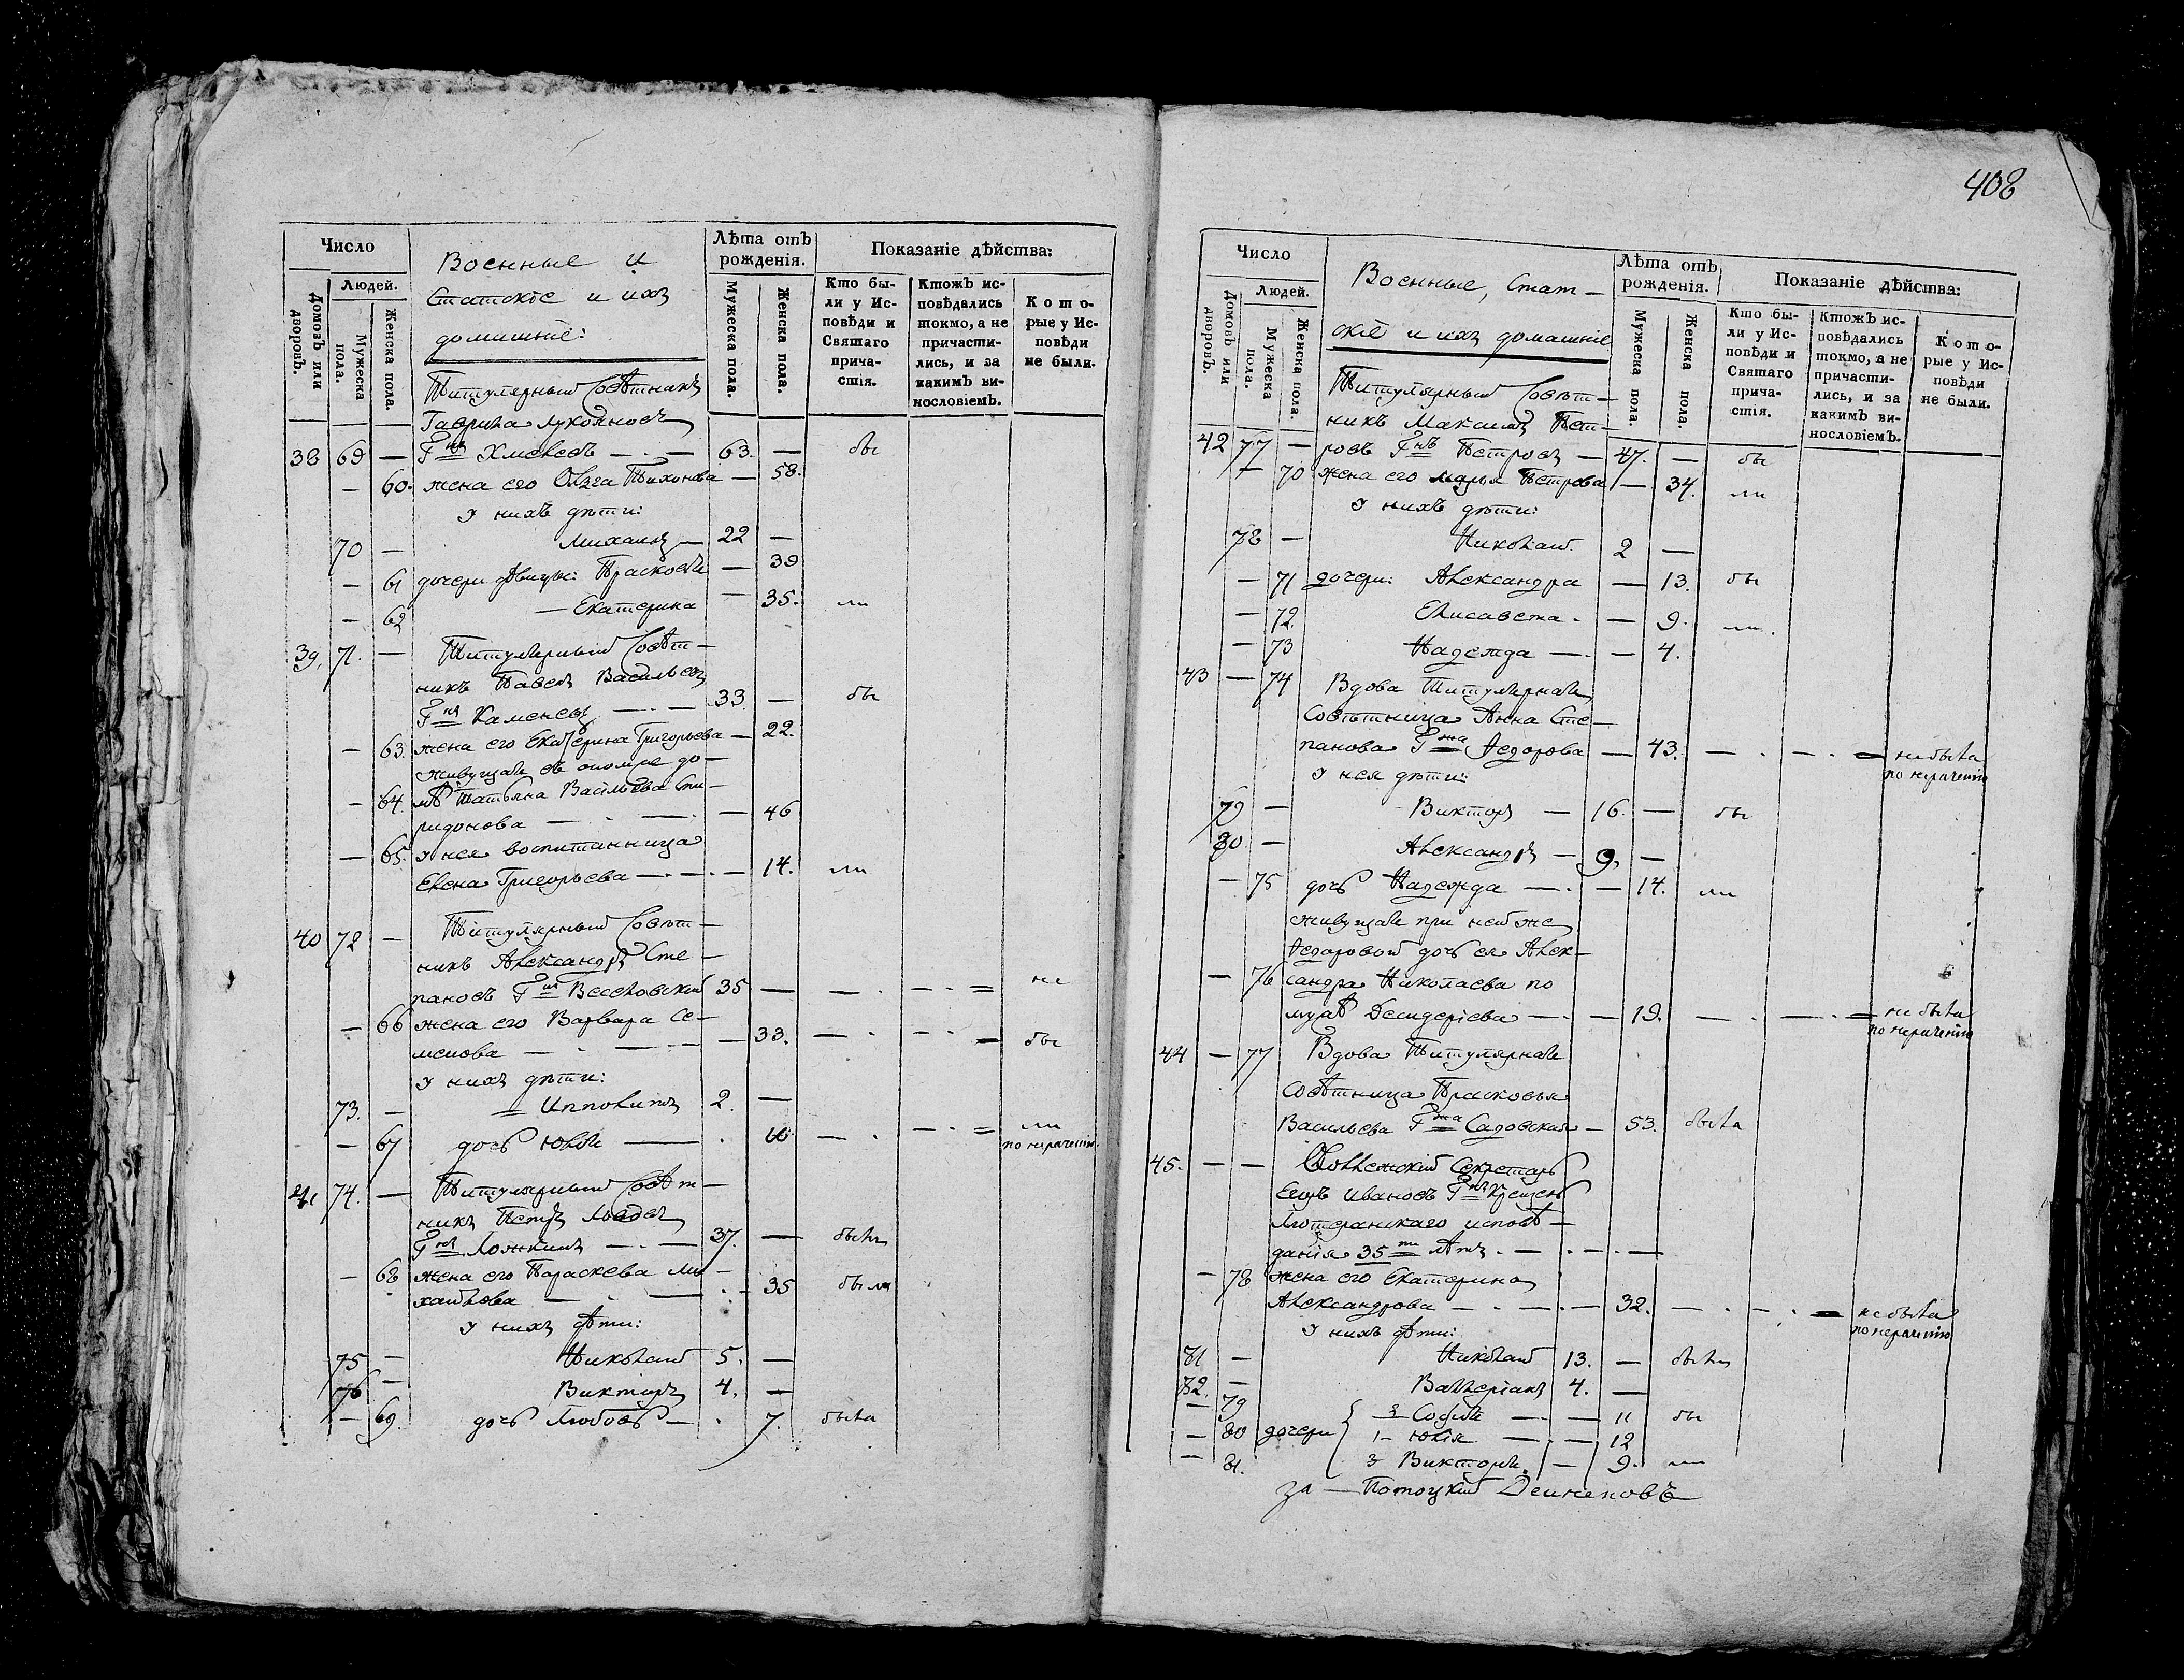 Число
Людей.
Домовъ или дворовъ.
Мужеска пола.
Женска пола.
Военные и
Статскіе и ихъ
домашніе:
Лѣта отъ рожденія.
Мужеска пола.
Женска пола.
Показаніе дѣйства:
Кто бы-
ли у Ис-
повѣди и
Святаго
прича-
стія.
Ктожъ ис-
повѣдались
токмо, а не
причасти-
лись, и за
какимъ ви-
нословіемъ.
Кото-
рые у Ис-
повѣди
не были.
Титулярный Совѣтникъ
Гаврила Лукояновъ
38 69 — Гнъ Хмелевъ — 63. — бы
— 60. жена его Ольга Тихонова — 58.
у нихъ дѣти:
70 — Михаилъ — 22 —
— 61 дочери дѣвицы: Прасковья — 39
— 62 — Екатерина — 35. ли
39, 71. — Титулярный Совѣт-
никъ Павелъ Васильевъ
Гнъ Каменевъ — 33. — бы
— 63. жена его Екатерина Григорьева — 22.
живущая въ ономъ до-
— 64. мѣ Татьяна Васильева Спи-
ридонова — 46
— 65. у нея воспитанница
Елена Григорьева — 14. ли
40 72 — Титулярный Совѣт-
никъ Александръ Сте-
пановъ Гнъ Веселовский 35 — не
— 66 жена его Варвара Се-
менова — 33. — бы
у нихъ дѣти:
73. — Ипполитъ 2. —
— 67 дочь Юлія — ли
по нераченію
41 74. — Титулярный Совѣт-
никъ Петръ
Гнъ Ложкинъ — 37. — былъ
— 68 жена его Параскева Ми-
хайлова — 35 была
у нихъ дѣти:
75 — Николай 5. —
76 — Викторъ 4. —
— 69. дочь Любовь — 7. была
408
Число
Людей.
Домовъ или дворовъ.
Мужеска пола.
Женска пола.
Военные, Стат-
скіе и ихъ домашніе
Лѣта отъ рожденія.
Мужеска пола.
Женска пола.
Показаніе дѣйства:
Кто бы-
ли у Ис-
повѣди и
Святаго
прича-
стія.
Ктожъ ис-
повѣдались
токмо, а не
причасти-
лись, и за
какимъ ви-
нословіемъ.
Кото-
рые у Ис-
повѣди
не были.
Титулярный Совѣт-
никъ Максимъ Пет-
42 77 — ровъ Гнъ Петровъ — 47. — бы
— 70 жена его Марья Петрова — 34. ли
у нихъ дѣти:
78 — Николай. 2 —
— 71 дочери: Александра — 13. бы
— 72. Елисавета — 9. ли.
— 73 Надежда — 4.
43 — 74 Вдова Титулярная
Совѣтница Анна Сте-
панова Гжа Федорова — 43. — не была
по нераченію
у нея дѣти:
79 — Викторъ — 16. — бы
80 — Александръ — 9, —
— 75 дочь Надежда — 14. ли
живущая при ней же
Федоровой дочь ея Алек-
— 76 сандра Николаева по
мужѣ Десидеріева — 19. — не была
по нераченію
44 — 77 Вдова Титулярная
Совѣтница Прасковья
Васильева Гжа Садовская — 53. была
45. — — Коллежский Секретарь
Егоръ Ивановъ Гнъ
Лютеранскаго исповѣ-
данія 35ти лѣтъ. —
— 78 жена его Екатерина
Александрова — 32. — не была
по нераченію
у нихъ дѣти:
81 — Николай 13. — былъ
82. — Валлеріанъ 4. —
— 79 Софія — 11 бы
— 80 дочери 1 — Юлія — 12
— 81. 3 Викторія — 9. ли